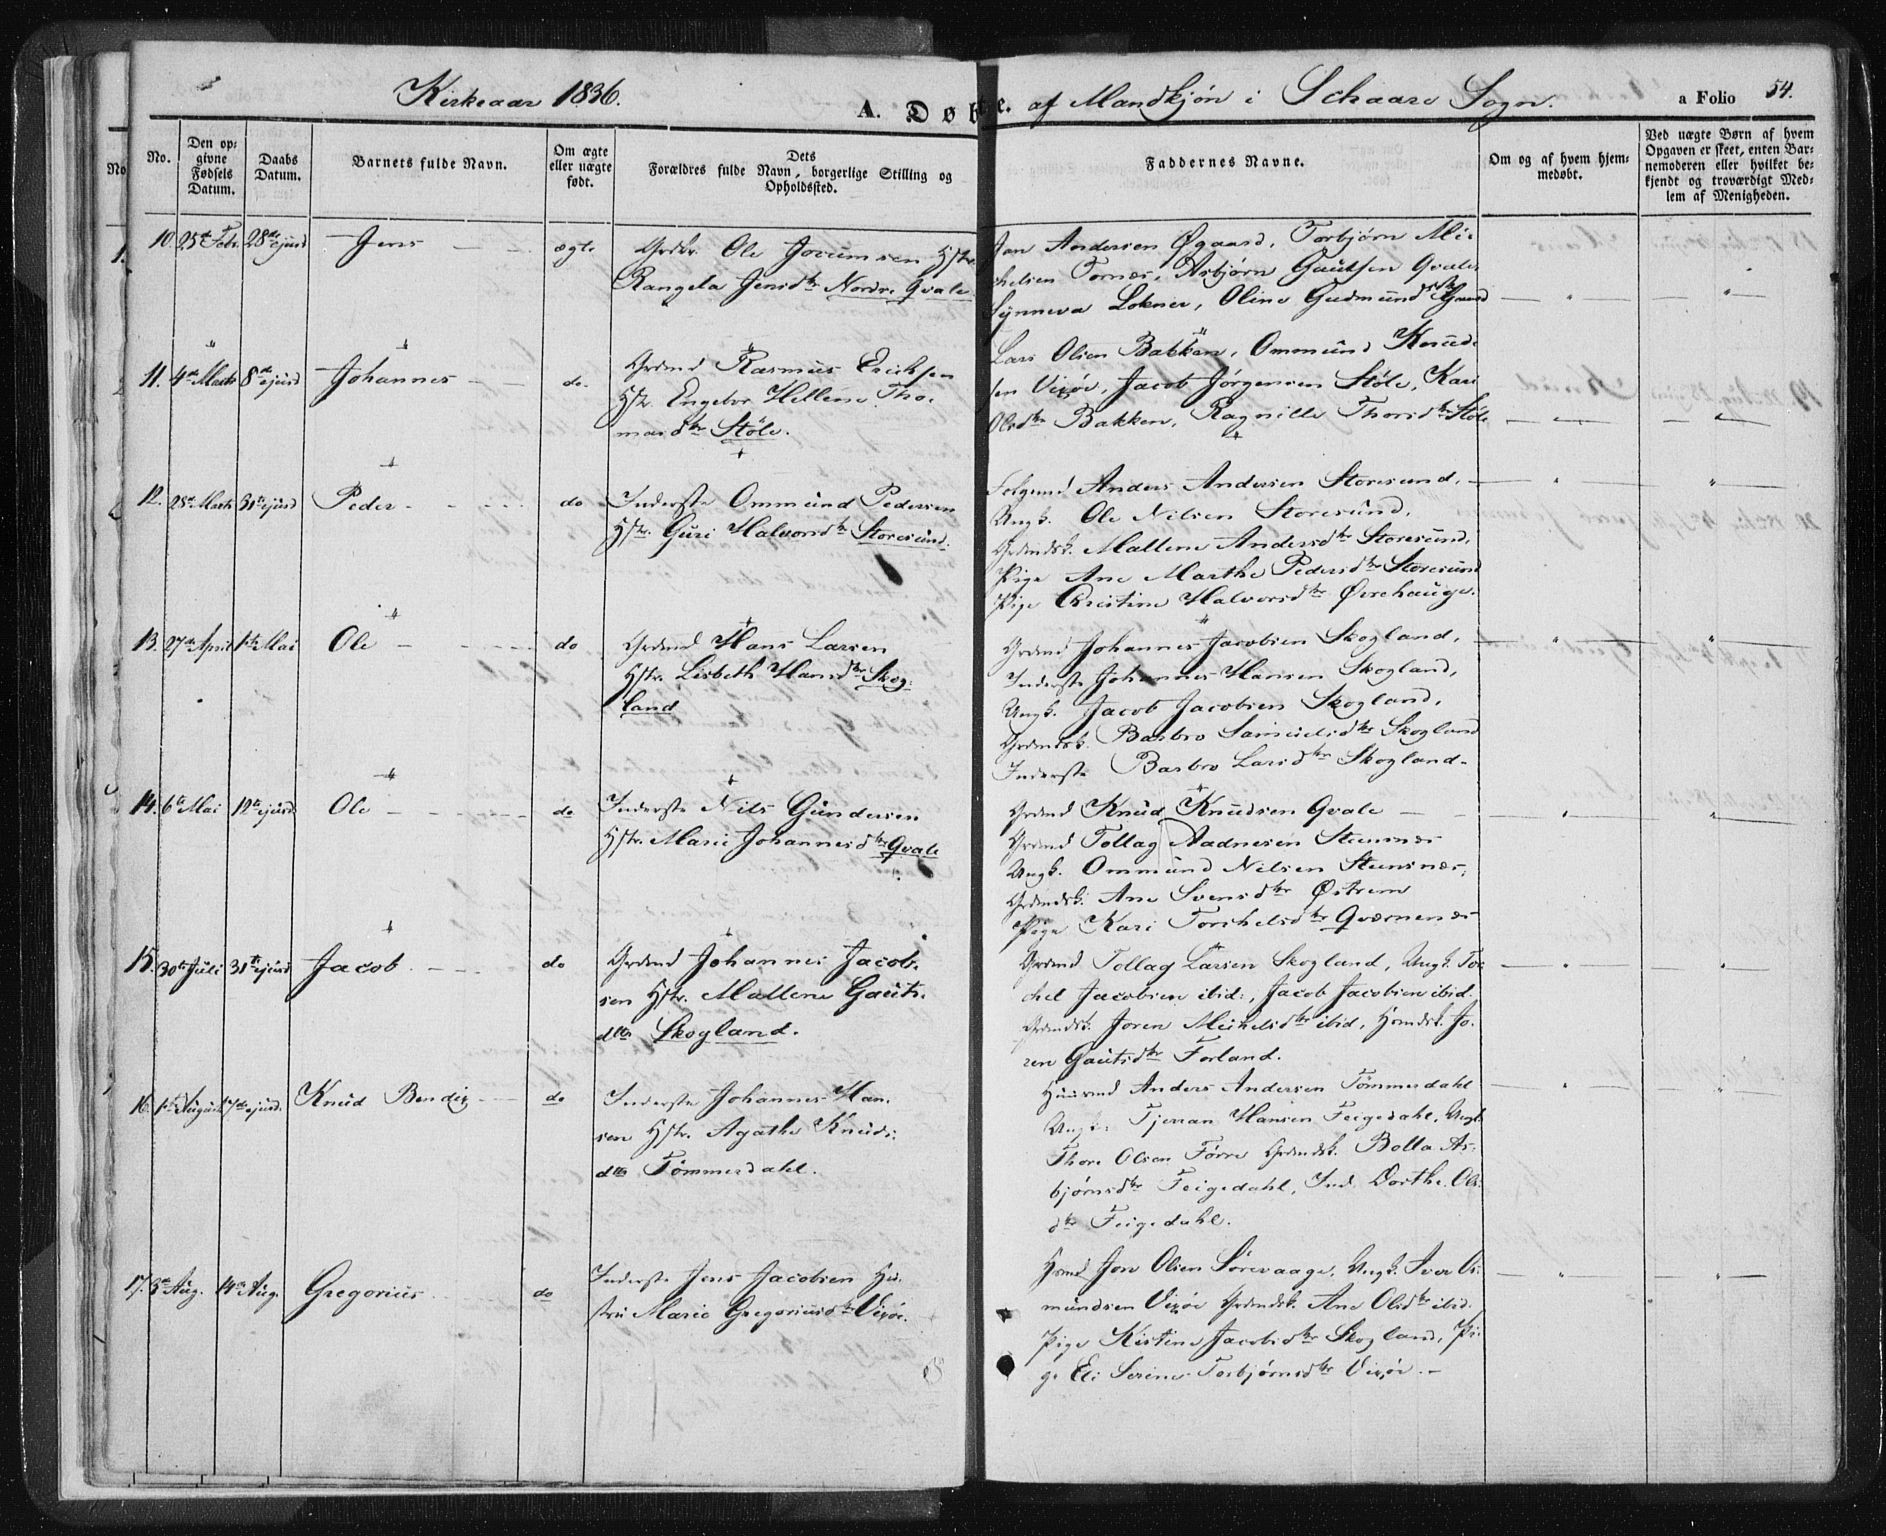 Kirkeaar 1836.
A. Døbte. af Mandkjøn i Schaare Sogn.
a Folio 54.
No.
No.
Den op-
givne
Fødsels
Datum.
Daabs
Datum.
Barnets fulde Navn.
Om ægte
eller uægte
født.
Dets
Forældres fulde Navn, borgerlige Stilling og
Opholdssted.
Faddernes Navne.
Om og af hvem hjem-
medøbt.
Ved uægte Børn af hvem
Opgaven er skeet, enten Bar-
nemoderen eller hvilket be-
kjendt og troværdigt Med-
lem af Menigheden.
10. 25de Febr. 28de ejusd Jens ægte
Ole Jocumsen Hstr.
Rangela Jensdtr Nordre Qvale
Jan Andersen Øgaard, Torbjørn Mi-
chelsen Tornæs, Asbjørn Gautsen Qvale,
Synneva Lokner, Oline Gudmundsdtr
11. 4de Marts 8de ejusd Johannes do.
Grdmd Rasmus Ericksen
Hstr. Engebor Hellene Tho-
masdtr Støle.
Lars Olsen Bakken, Ommund Knud-
sen Vixøe, Jacob Jørgensen Støle, Kari
Olsdtr Bakken, Ragnille Thorsdtr Støle
12. 28de Marts 31te ejusd Peder do
Inderste Ommund Pedersen
Hstr. Guri Halvorsdtr Storesund.
Anders Andersen Storesund,
Ungk. Ole Nilsen Storesund,
Grdmdsk. Mallene Andersdtr Storesund,
Pige Ane Marthe Pedersdtr Storesund
Pige Christine Halvorsdtr Øvrehauge.
13. 27de April 1ste Mai Ole do
Grdmd Hans Larsen
Hstr. Lisbeth Hansdtr Skog-
land
Grdmd Johannes Jacobsen Skogland,
Inderste Johannes Hansen Skogland,
Ungk. Jacob Jacobsen Skogland,
Grdmdsk. Barbro Samuelsdtr Skogland
Inderste Barbro Larsdtr Skogland.
14. 6te Mai 12te ejusd. Ole do
Inderste Nils Gundersen
Hstr. Marie Johannesdtr Qvale
Grdmd Knud Knudsen Qvale
Grdmd Tollag Aadnesen Steensnæs
Ungk. Ommund Nilsen Steensnæs,
Grdmdsk. Ane Svensdtr Østrem
Pige Kari Torchelsdtr Qværnenæs
15. 30te Juli 31te ejusd Jacob do
Grdmd Johannes Jacob-
sen Hstr. Mallene Gauts-
dtr Skogland.
Grdmd Tollag Larsen Skogland, Ungk. Tor-
chel Jacobsen ibid:, Jacob Jacobsen ibid.
Grdmdsk. Joren Michelsdtr ibid, Hsmdsk. Jo-
ren Gautsdtr Forland.
16. 1ste August 7de ejusd. Knud Bendix do
Inderste Johannes Han-
sen Hstr. Agathe Knuds-
dtr Tømmerdahl.
Huusmd Anders Andersen Tømmerdahl
Ungk. Tjeran Hansen Feigedahl, Ungk.
Thore Olsen Førre Grdmdsk. Bolla As-
bjørnsdtr Feigedahl, Ind. Dorthe Ols-
dtr Feigedahl.
17. 3de Aug. 14de Aug. Gregorius do
Inderste Jens Jacobsen Hu-
stru Marie Gregoriusdtr Vixøe.
Hsmd Jon Olsen Sørevaage, Ungk. Iver Os-
mundsen Vixøe Grdmdsk. Ane Olsdtr ibid.
Pige Kistine Jacobsdtr Skogland, Pi-
ge Eli Serine Torbjørnsdtr Vixøe.